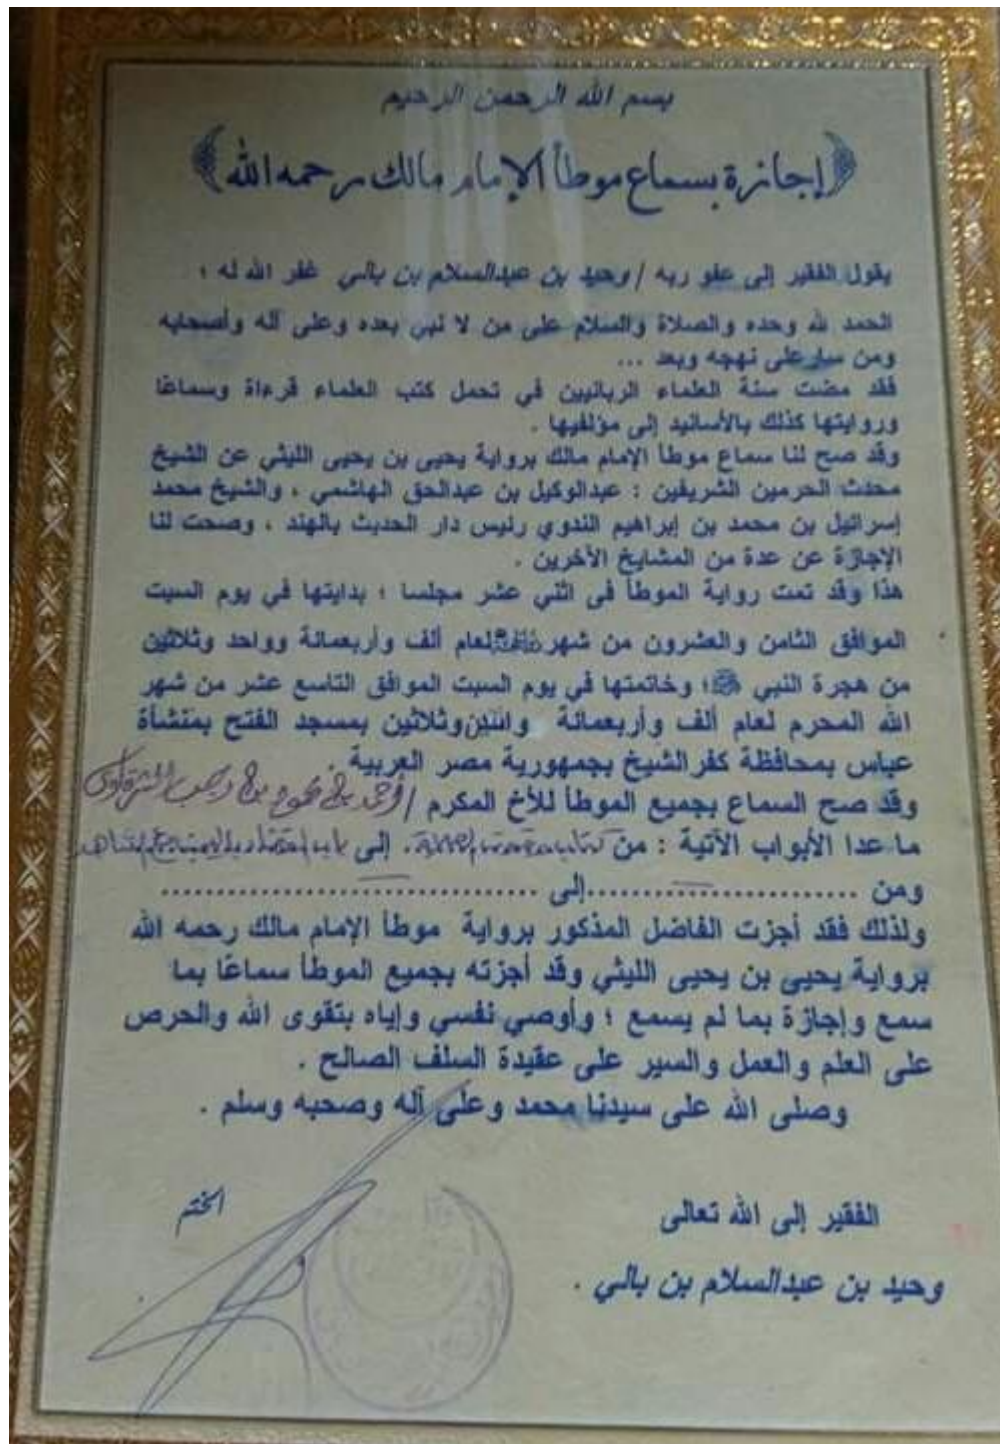 بسم الله الرحمن الرحيم
إجازة بسماع موطأ الإمام مالك رحمه الله
يقول الفقير إلى عفو ربه / وحيد بن عبدالسلام بن بالي غفر الله له ؛
الحمد لله وحده والصلاة والسلام على من لا نبي بعده وعلى آله وأصحابه
ومن سار على نهجه وبعد ...
فقد مضت سنة العلماء الربانيين في تحمل كتب العلماء قرءاة وسماعًا
وروايتها كذلك بالأسانيد إلى مؤلفيها .
وقد صح لنا سماع موطأ الإمام مالك برواية يحيى بن يحيى الليثي عن الشيخ
محدث الحرمين الشريفين : عبدالوكيل بن عبدالحق الهاشمي ، والشيخ محمد
إسرائيل بن محمد بن إبراهيم الندوي رئيس دار الحديث بالهند ، وصحت لنا
الإجازة عن عدة من المشايخ الأخرين .
هذا وقد تمت رواية الموطأ فى اثني عشر مجلسا ؛ بدايتها في يوم السبت
الموافق الثامن والعشرون من شهر لعام ألف وأربعمائة وواحد وثلاثين
من هجرة النبي ﷺ؛ وخاتمتها في يوم السبت الموافق التاسع عشر من شهر
الله المحرم لعام ألف وأربعمائة واثنين وثلاثين بمسجد الفتح بمنشأة
عباس بمحافظة كفر الشيخ بجمهورية مصر العربية .
وقد صح السماع بجميع الموطأ للأخ المكرم /
ما عدا الأبواب الآتية : من كتاب إلى باب القضاء باليمين مع الشاهد
ومن ........................إلى ................................
ولذلك فقد أجزت الفاضل المذكور برواية موطأ الإمام مالك رحمه الله
برواية يحيى بن يحيى الليثي وقد أجزته بجميع الموطأ سماعًا بما
سمع وإجازة بما لم يسمع ؛ وأوصي نفسي وإياه بتقوى الله والحرص
على العلم والعمل والسير على عقيدة السلف الصالح .
وصلى الله على سيدنا محمد وعلى آله وصحبه وسلم .
الفقير إلى الله تعالى
الختم
وحيد بن عبدالسلام بن بالي .